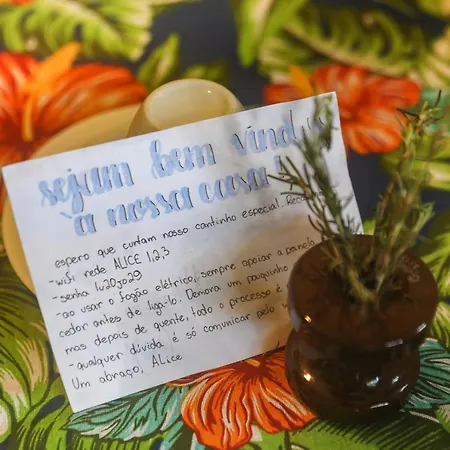 sejam bem vindos
à nossa casa!
espero que curtam nosso cantinho especial.
-wifi rede ALICE 1,2,3
-senha
-ao usar o fogão elétrico, sempre apoiar a panela
cedor antes de ligá-lo. Demora um pouquinho
mas depois de quente, todo o processo é
-qualquer dúvida é só comunicar pelo
Um abraço, ALice